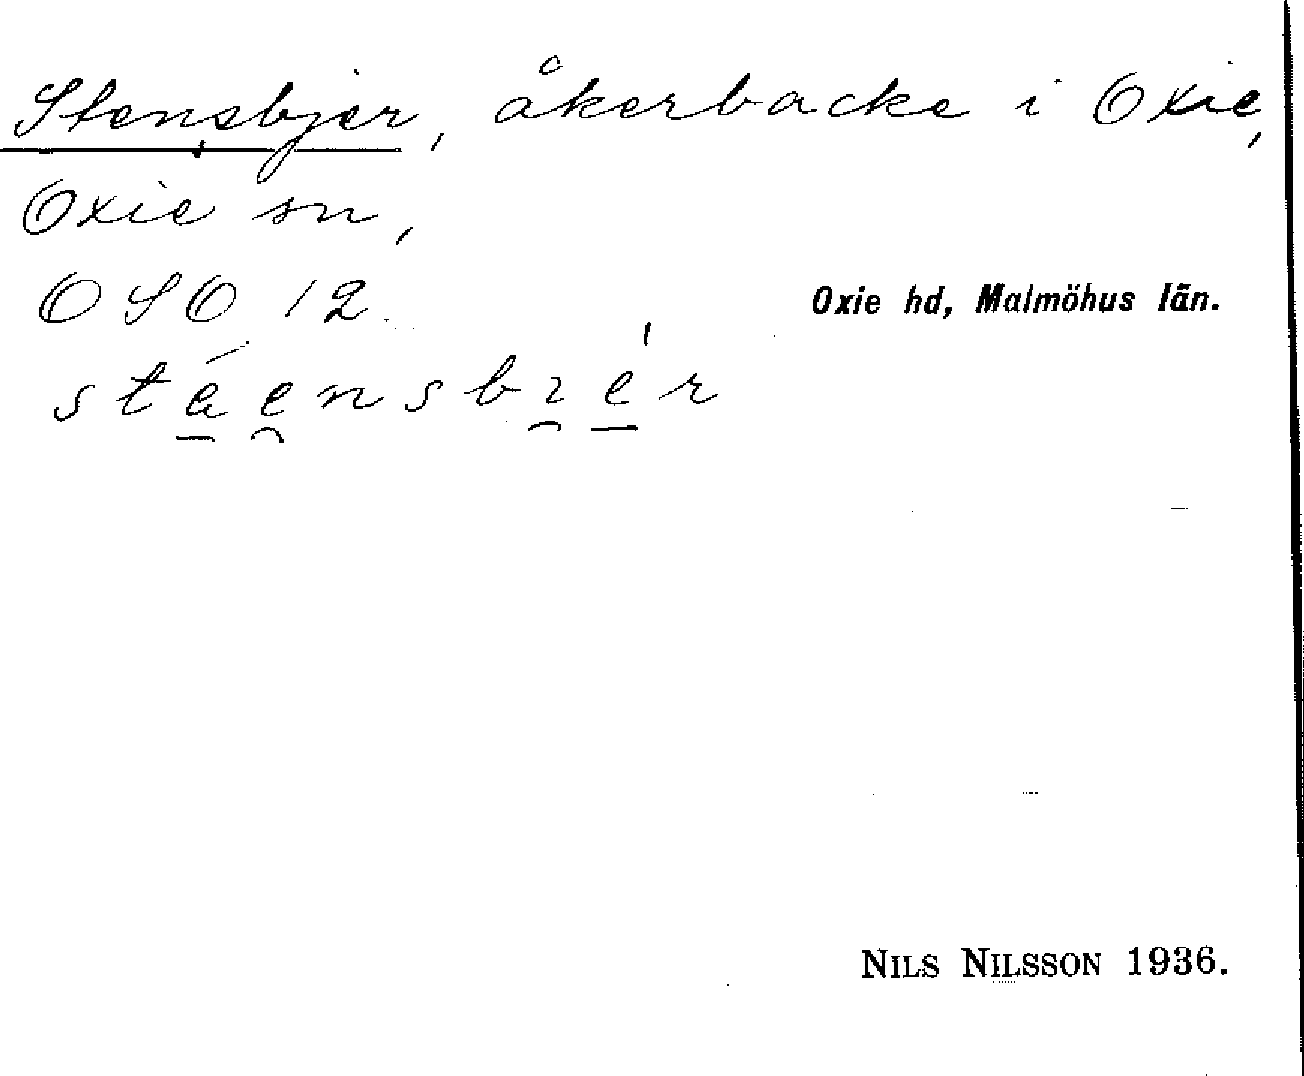 Stensbjer, åkerbacke i Oxie,
Oxie sn,
OSO 12.
Oxie hd, Malmöhus län.
stáensbɿér
NILS NILSSON 1936.